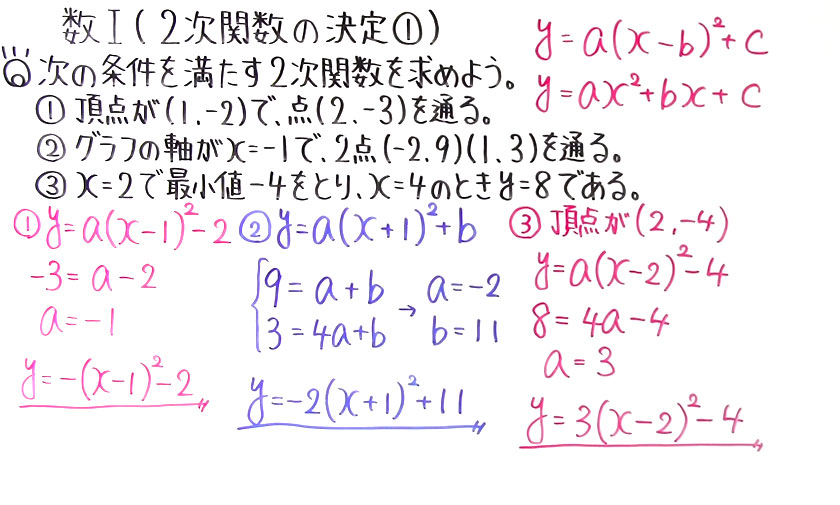 数Ⅰ(2次関数の決定①)
y=a(x-b)²+c
y=ax²+bx+c
次の条件を満たす2次関数を求めよう。
① 頂点が(1,-2)で、点(2,-3)を通る。
② グラフの軸がx=-1で、2点(-2,9)(1,3)を通る。
③ x=2で最小値-4をとり、x=4のときy=8である。
① y=a(x-1)²-2
-3=a-2
a=-1
y=-(x-1)²-2
② y=a(x+1)²+b
9=a+b → a=-2
3=4a+b b=11
y=-2(x+1)²+11
③ 頂点が(2,-4)
y=a(x-2)²-4
8=4a-4
a=3
y=3(x-2)²-4